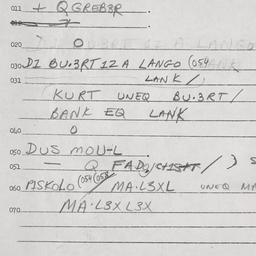 011 + Q GREB3R
020 O
030 DI BU·3RT 12 A LANGO (054
031 LANK /
KURT UNEQ BU·3RT /
BANK EQ LANK
040 O
050 DUS MOU-L
051 — Q FAD /
060 PISKOLO (054 (058 MA·L3XL UNEQ MA
070 MA·L3X L3X